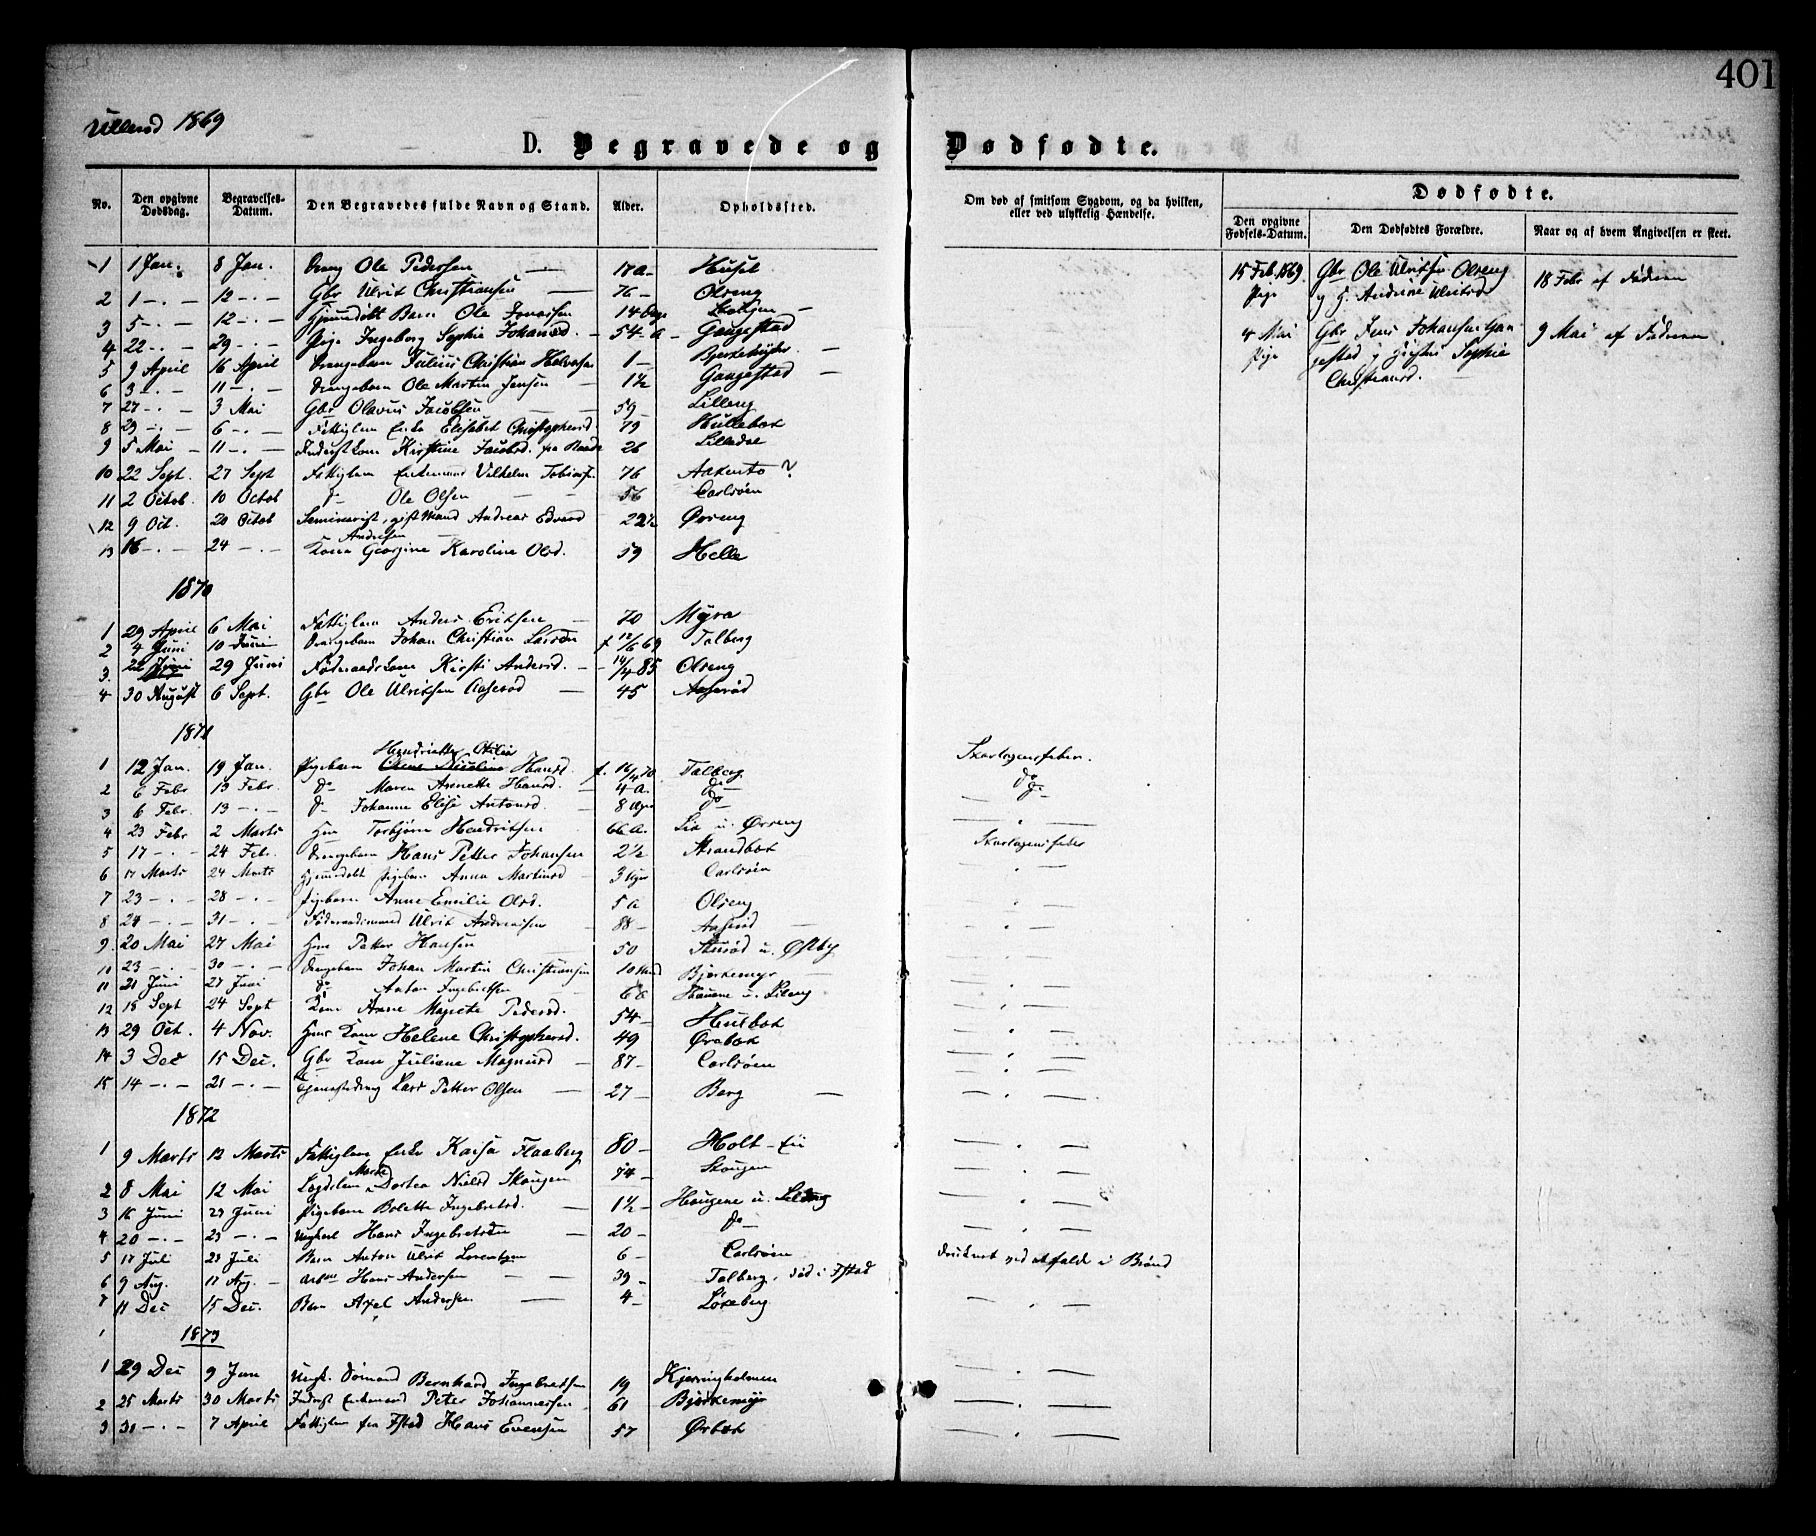 401
Ullerød 1869
D. Begravede og Dødfødte.
No. Den opgivne Dødsdag. Begravelses-Datum. Den Begravedes fulde Navn og Stand. Alder. Opholdssted. Om død af smitsom Sygdom, og da hvilken, eller ved ulykkelig Hændelse. Dødfødte.
Den opgivne Fødsels-Datum. Den Dødfødtes Forældre. Naar og af hvem Angivelsen er skeet.
1 1 Jan. 8 Jan. Dreng Ole Pedersen — 17 a- Husel
15 Feb. 1869. Pige Gbr Ole Ulriksen Olseng og H. Andrine Ulriksd 18 Febr af Faderen
2 1 -.- 12 -.- Gbr Ulrik Christiansen — 76 - Olseng
3 5 -.- 12 -.- Hjemmedøbt Barn Ole Jonassen 14 Dage
4 22 -.- 29 -.- Pige Ingeborg Sophie Johansd. - 54 a - Gaugestad
4 Mai Pige Gbr Jens Johansen Gaugestad og Sophie Christiansd. 9 Mai af Faderen
5 9 April 16 April Drengebarn Julius Christian Halvorsen 1 -
6 3 -.- 11 -.- Drengebarn Ole Martin Jensen - 1½ Gaugestad
7 27 -.- 3 Mai Gbr Olavus Jacobsen 59 - Lilleng
8 29 -.- 6 -.- Fattiglem Enke Elisabet Christophersd 79 Hullebæk
9 5 Mai 11 -.- Inderstkone Kirstine Jacobsd. fra Raade 26
10 22 Sept. 27 Sept Fattiglem Enkemand Vilhelm Tobiassen 76 Aakento ?
11 2 Octob. 10 Octob do Ole Olsen 56 Carlsøen
12 9 Oct. 20 Octob Seminarist, gift Mand Andreas Edvard Andersen 22½ Ørseng
13 16 -.- 24 -.- Kone Georgine Karoline Olsd. 59 Helle
1870
1 29 April 6 Mai Fattiglem Anders Eriksen — 70 Myra
2 4 Juni 10 Juni Drengebarn Johan Christian Larsen f 12/6 69 Talberg
3. 22 Juni 29 Juni Føderaadskone Kirsti Andersd. - 14/4 85 Olseng
4 30 August 6 Sept. Gbr Ole Ulriksen Aaserød — 45 Aaserød
1871
1 12 Jan. 19 Jan. Pigebarn Hendriette Otilie Hansd. f. 16/4 70 Talberg Skarlagensfeber
2 6 Febr 13 Febr. do Maren Annette Hansd. - 4 a. do do
3 6 Febr. 13 -.- do Johanne Elise Antonsd. - 8 Uger do do
4 23 Febr 2 Marts Hmd Torbjørn Hendriksen 66 a. Lie u. Ørseng
5 17 -.- 24 Feb. Drengebarn Hans Petter Johansen 2½ Strandbæk Skarlagensfeber
6 17 Marts 24 Marts Hjemmedøbt Pigebarn Anna Martinsd 3 Uger Carlsøen
7 23 -.- 28 -.- Pigebarn Anne Emilie Olsd. 5 a Olseng
8 24 -.- 31 -.- Føderaadsmand Ulrik Andreassen 88 - Aaserød
9. 20 Mai 27 Mai Hmd Petter Hansen 50 Stuerød u. Østby
10 23 -.- 30 -.- Drengebarn Johan Martin Christiansen 10 Mnd Bjerkemyr
11 21 Juni 27 Juni do Anton Ingebretsen 6 Haugene u. Lileng
12 18 Sept 24 Sept Kone Anne Margrete Pedersd. 54 - Husbæk
13 29 Oct. 4 Nov. Hmds Kone Helene Christophersd. 49 Ørebæk
14 3 Dec 15 Dec. Gbr Kone Juliane Magnusd — 87 - Carlsøen
15 14 -.- 21 -.- Tjenestedreng Lars Petter Olsen — 27 Berg
1872
1 9 Marts 12 Marts Fattiglem Enke Kaisa Flaaberg 80 - Holt-Eie
2 8 Mai 12 Mai Lægdslem Marte Dortea Nielsd Skougen 74 - Skougen
3 16 Juni 23 Juni Pigebarn Bolette Ingebretsd. — 1½ - Haugene u. Lileng
4 20 -.- 23 -.- Ungkarl Hans Ingebretsen — 20 - do
5 17 Juli 23 Juli Barn Anton Ulrik Lorentzen 6 - Carlsøen druknet ved at falde i Brønd
6 9 Aug. 17 Aug. - Arb Hans Andersen — 39 - Talberg, død i Fstad
7 11 Dec 15 Dec. Barn Axel Andersen — 4 - Løkeberg
1873
1 29 Dec 9 Jan Ungk. Sømand Bernhard Ingebretsen 19 Kjerringholmen
2 25 Marts 30 Marts Inderst Enkemand Peter Johannessen 61 Bjerkemyr
3 31 -.- 7 April Fattiglem fra Fstad Hans Evensen 57 Ørbæk